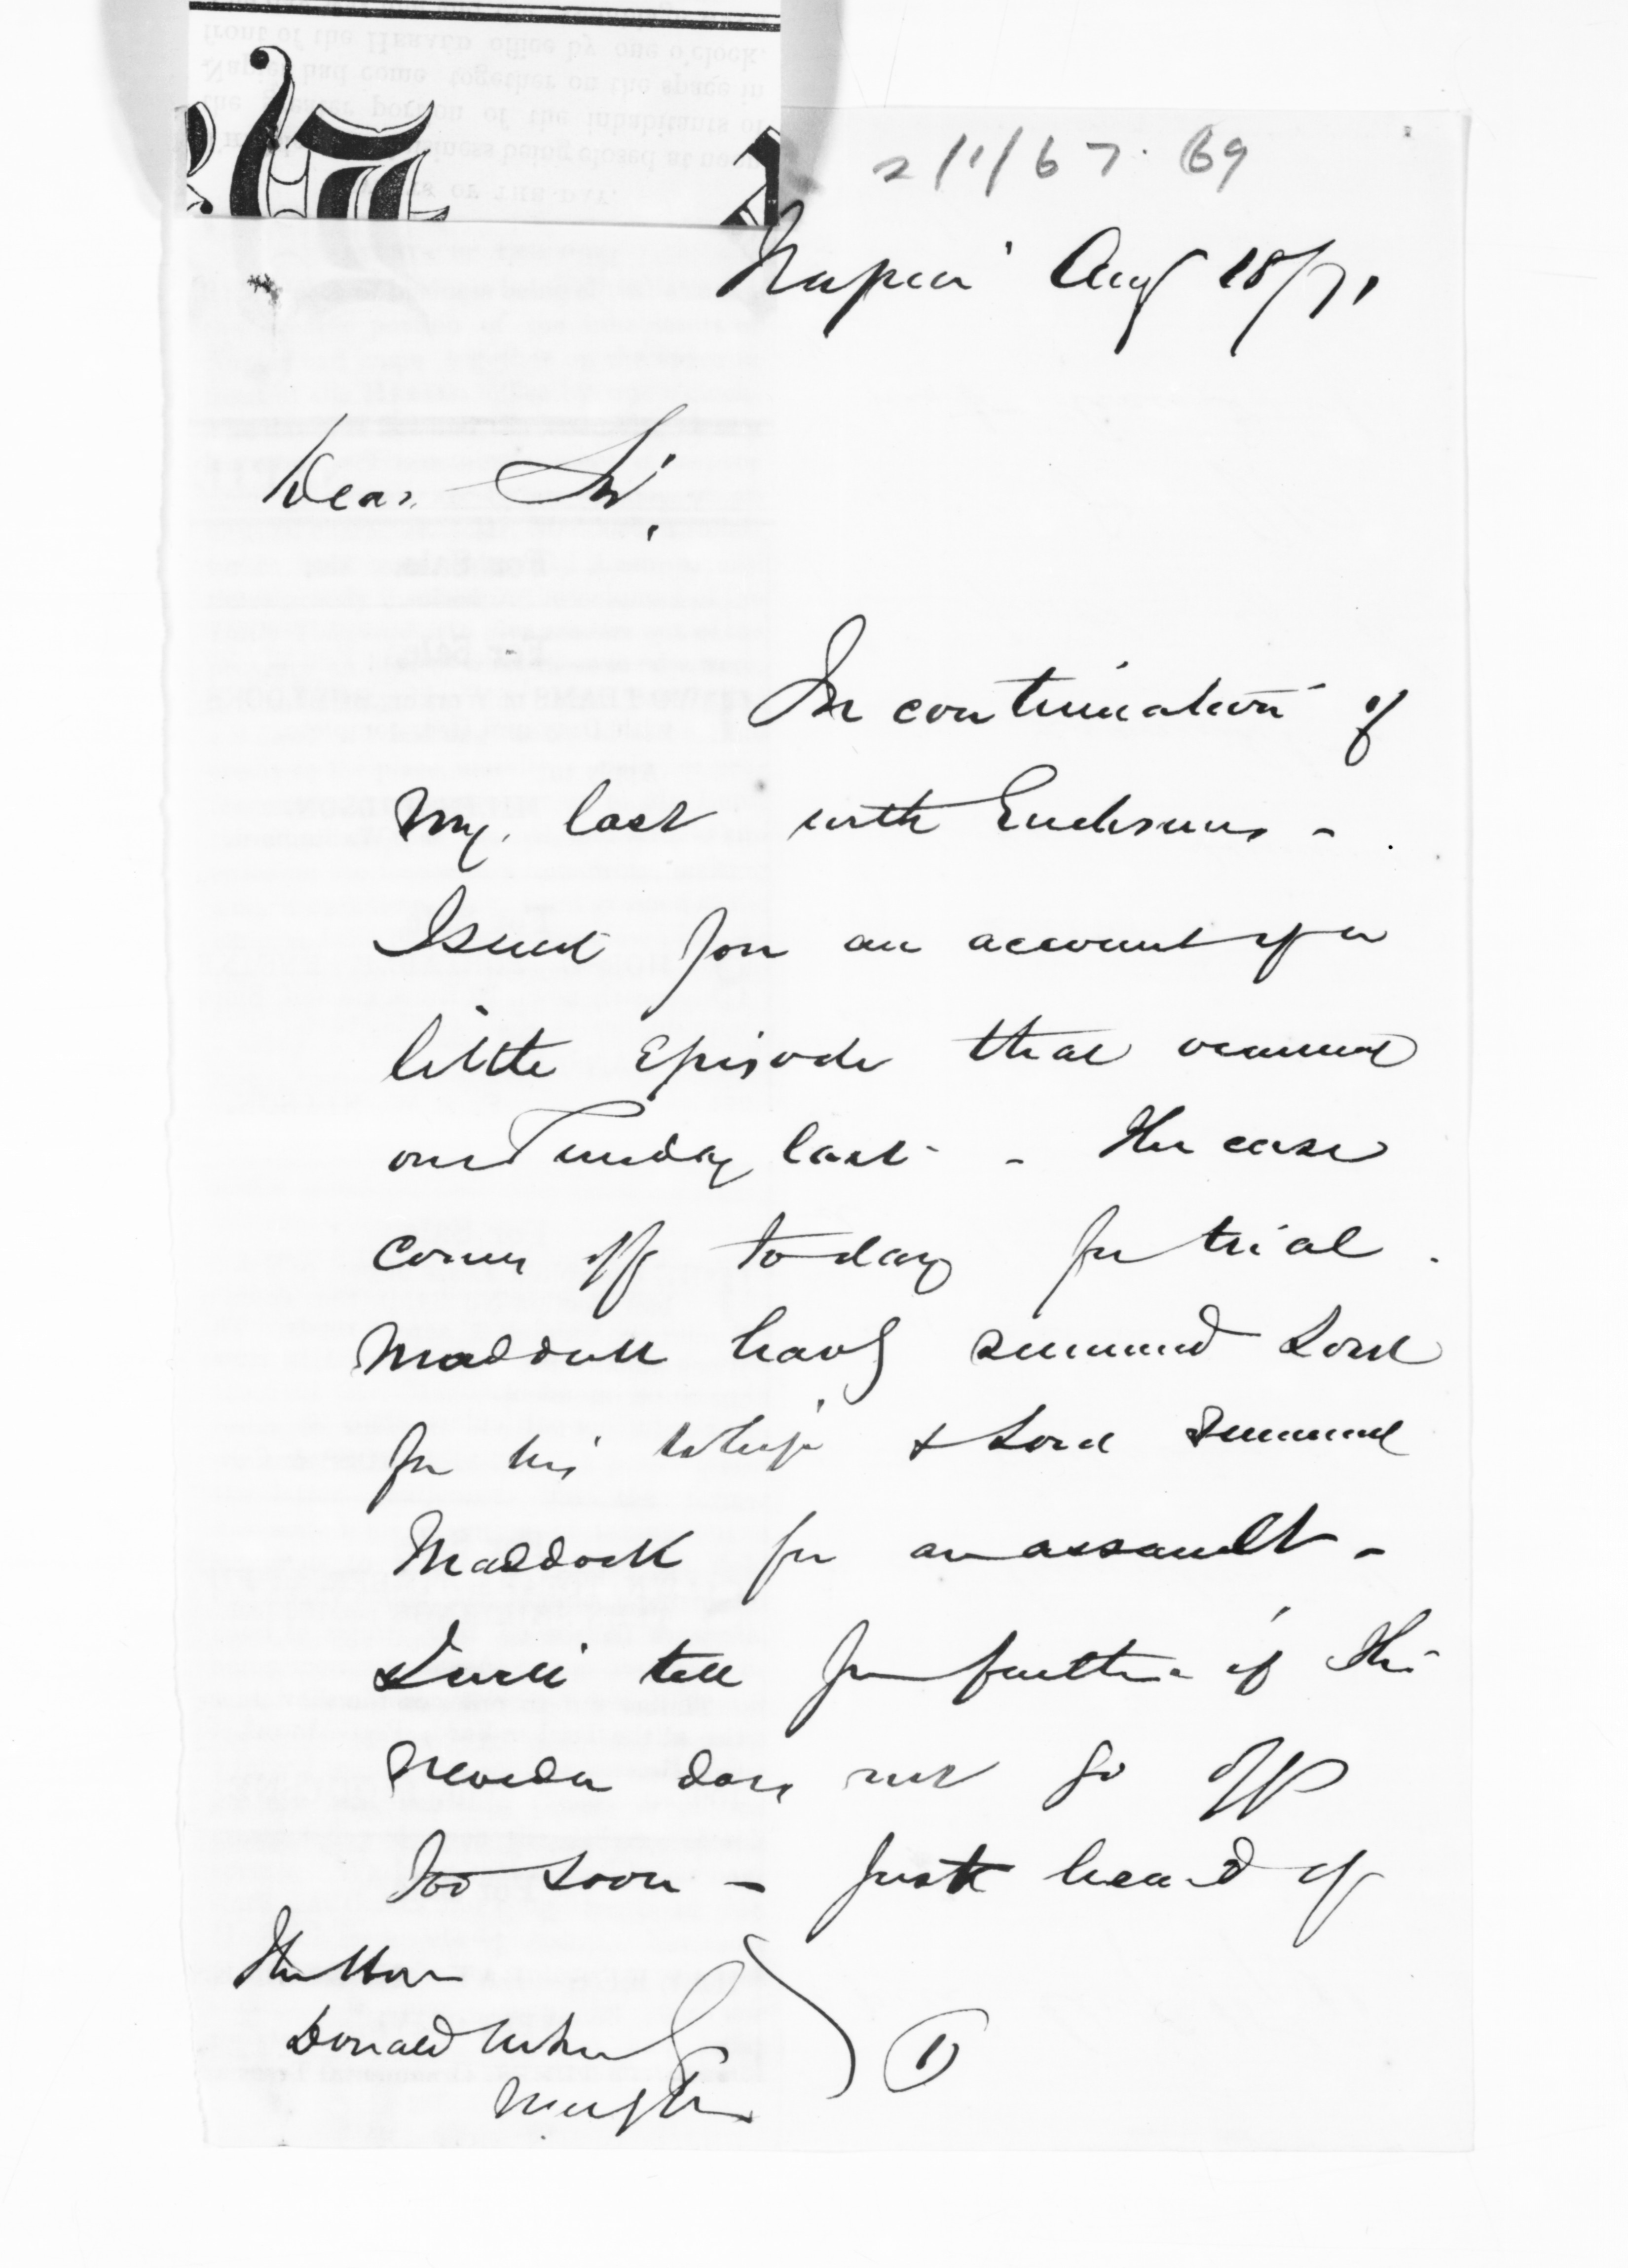 2/1/67. 69
Napier Aug 18/71
Dear Sir,
In continuation of
my last with Enclosures -
I send you an account of a
little Episode that occurred
on Tuesday last - The case
comes off to day for trial.
Maddock havg summd Lord
for his Whip & Lord summd
Maddock for an assault -
I will tell you further if the
does not go off
too soon - Just heard of
The Hon
Donald McLean
Wengtn
1